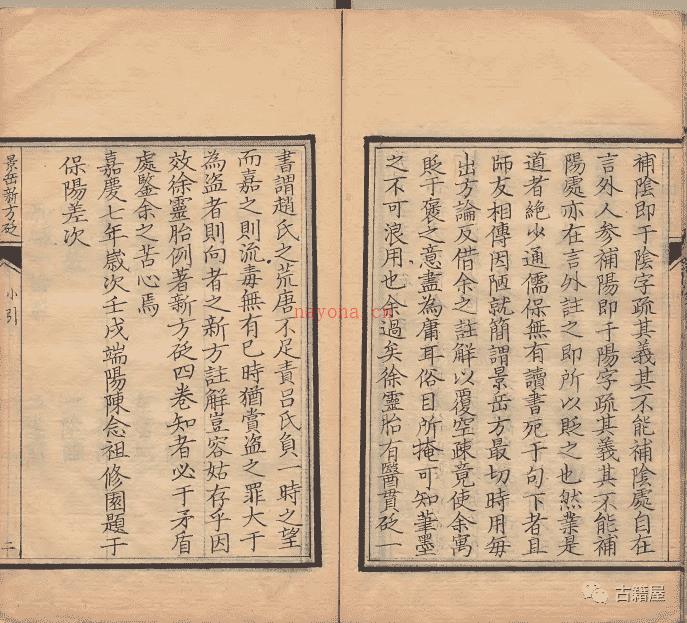 補陰即于陰字疏其義其不能補陰處自在
言外人參補陽即于陽字疏其義其不能補
陽處亦在言外註之即所以貶之也然業是
道者絶少通儒保無有讀書死于句下者且
師友相傳因陋就簡謂景岳方最切時用每
出方論反借余之註解以覆空疎竟使余寓
貶于褒之意盡為庸耳俗目所掩可知筆墨
之不可浪用也余過矣徐靈胎有醫貫砭一
書謂趙氏之荒唐不足責呂氏負一時之望
而嘉之則流毒無有已時猶賞盜之罪大于
為盜者則向者之新方註解豈容姑存乎因
效徐靈胎例著新方砭四卷知者必于矛盾
處鑒余之苦心焉
嘉慶七年歲次壬戌端陽陳念祖修園題于
保陽差次
景岳新方砭
小引
二
nayona.cn
古籍屋